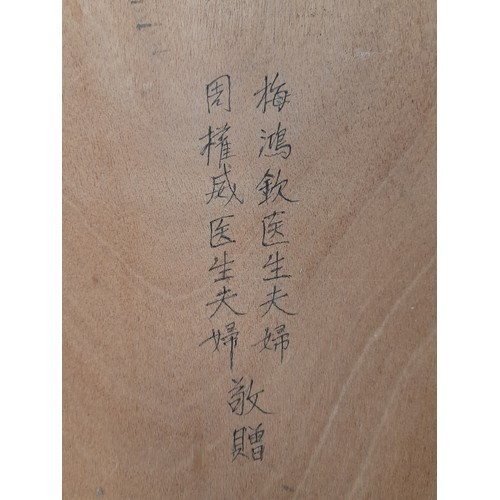 梅鴻欽医生夫婦
周權威医生夫婦
敬贈